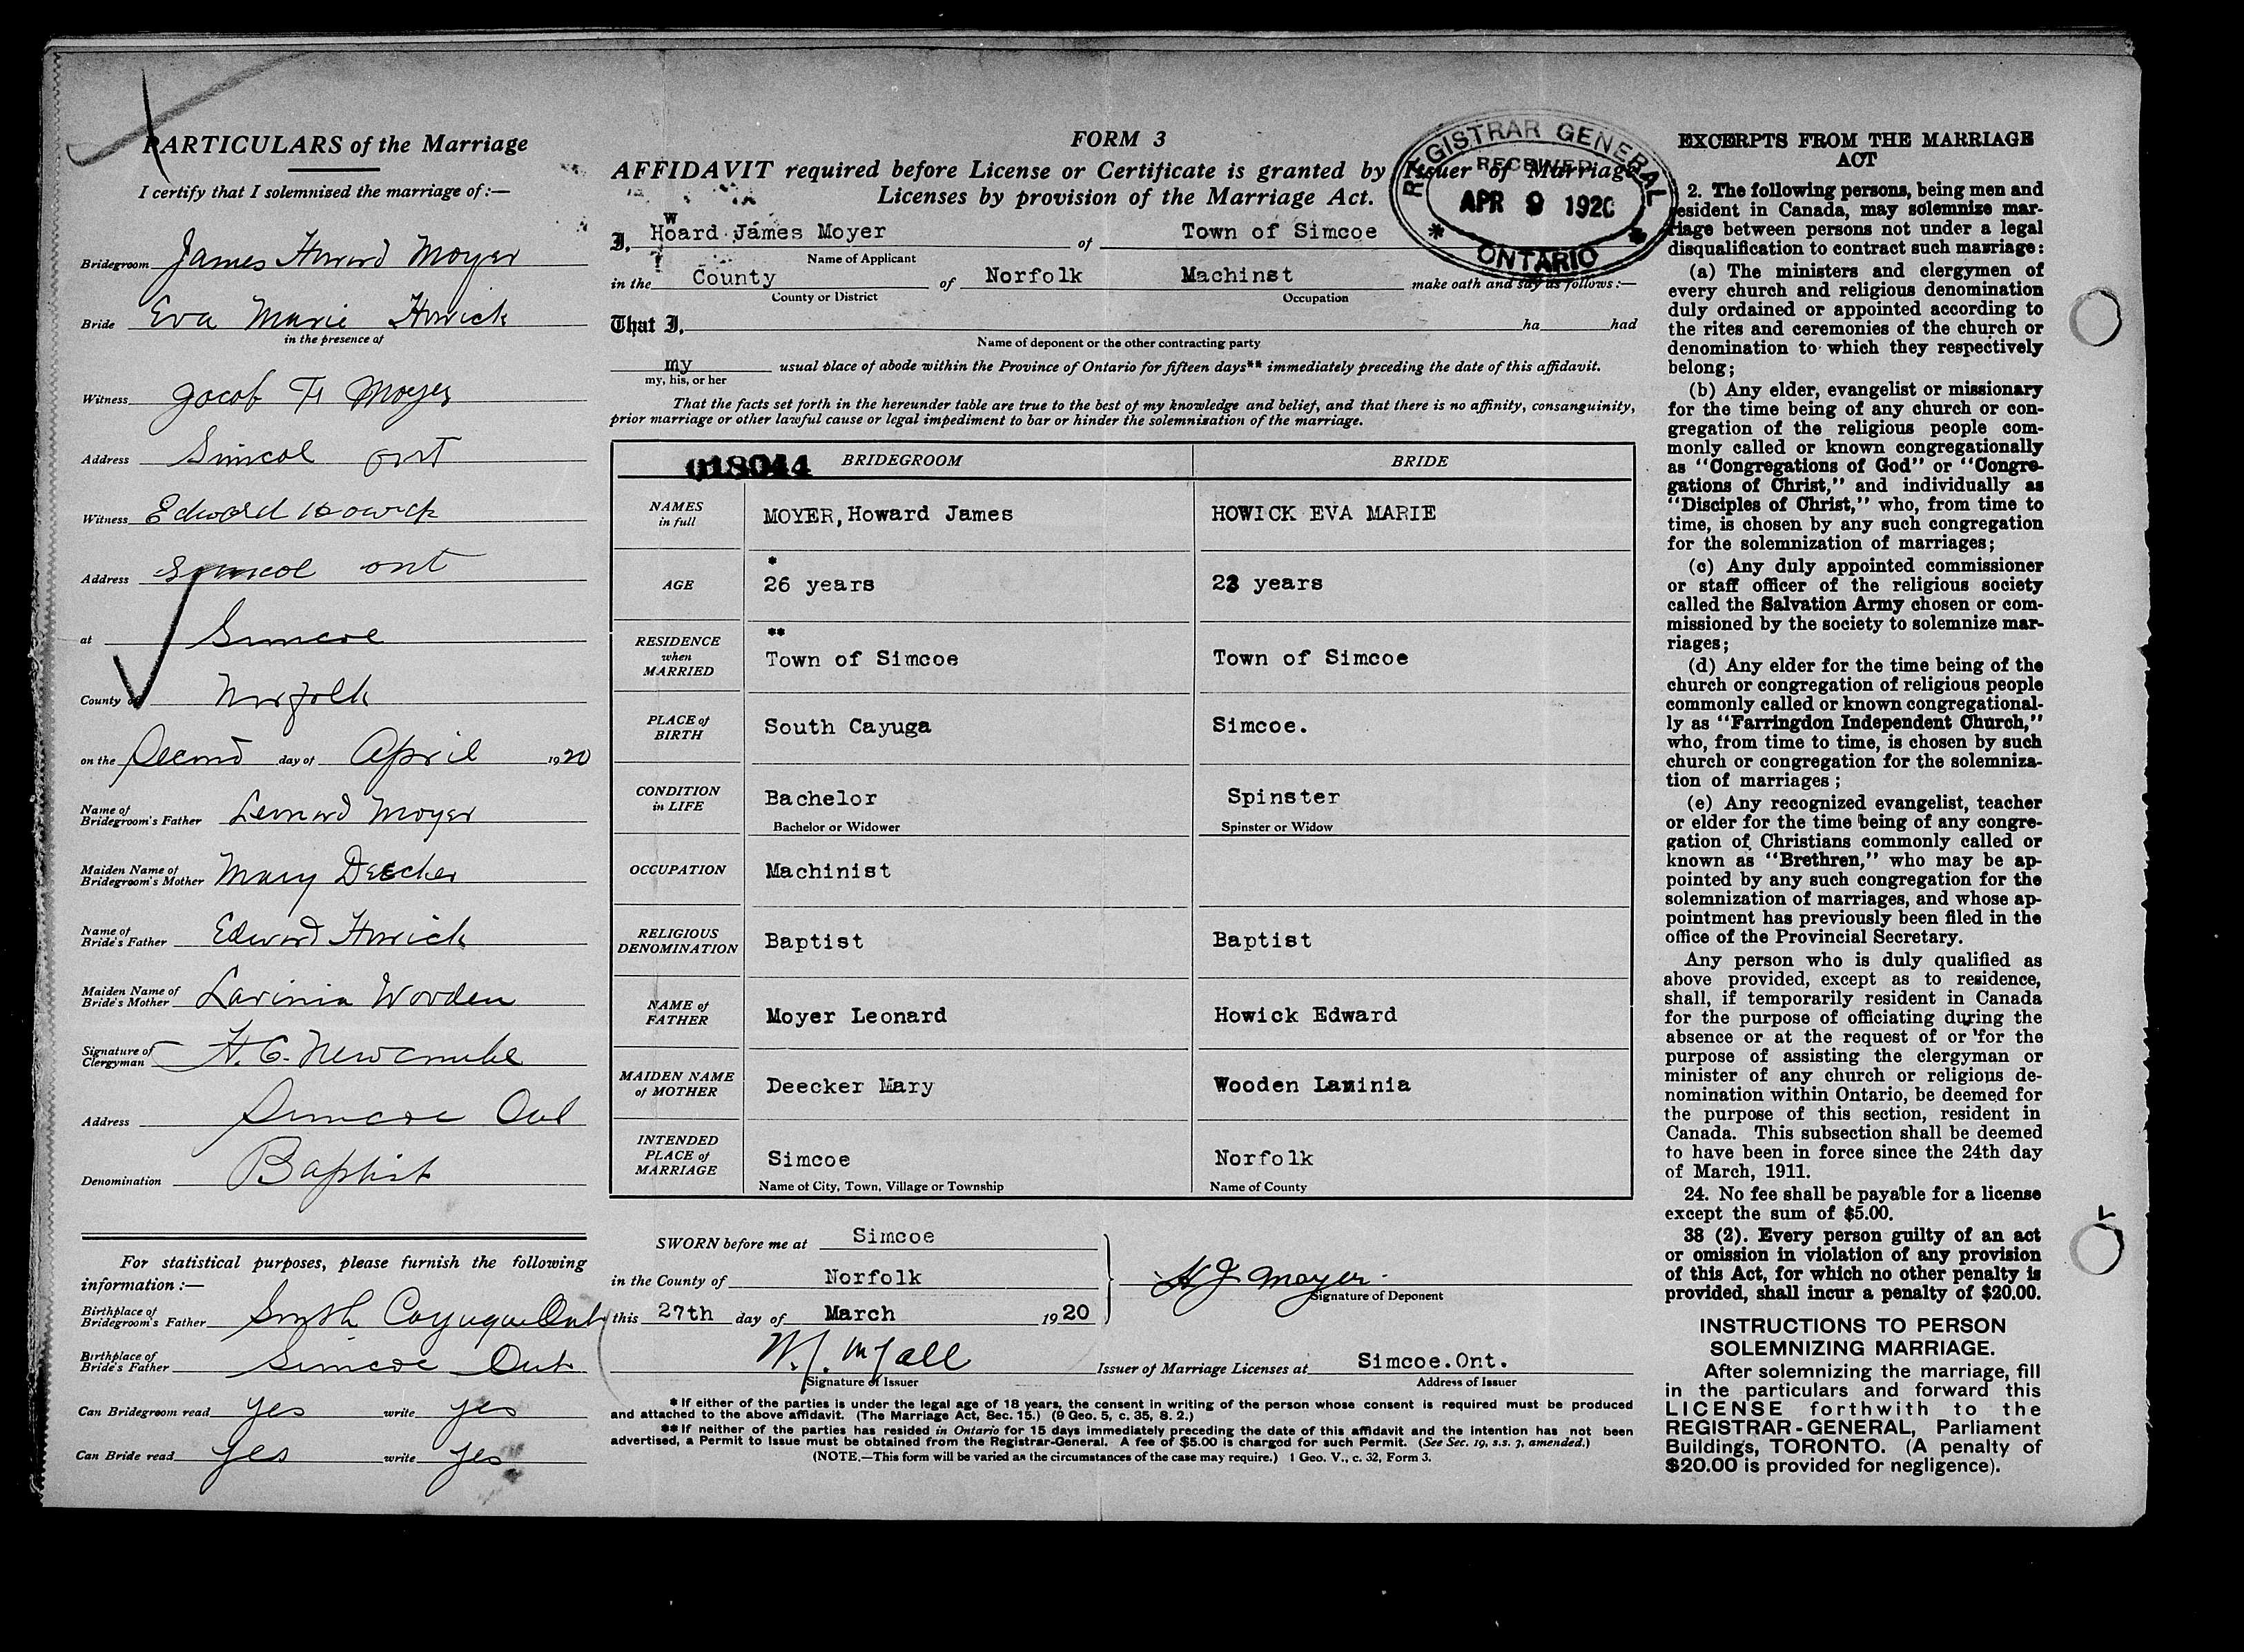 PARTICULARS of the Marriage
I certify that I solemnized the marriage of:—
Bridegroom James Howard Moyer
Bride Eva Marie Howick
in the presence of
Witness Jacob H Moyer
Address Simcoe Ont
Witness Edward Howick
Address Simcoe Ont
at Simcoe
County of Norfolk
on the Second day of April 1920
Name of Bridegroom's Father Leonard Moyer
Maiden Name of Bridegroom's Mother Mary Deecker
Name of Bride's Father Edward Howick
Maiden Name of Bride's Mother Lavinia Wooden
Signature of Clergyman H. C. Newcombe
Address Simcoe Ont
Denomination Baptist
For statistical purposes, please furnish the following
information:—
Birthplace of Bridegroom's Father South Cayuga Ont
Birthplace of Bride's Father Simcoe Ont
Can Bridegroom read yes write yes
Can Bride read yes write yes
FORM 3
AFFIDAVIT required before License or Certificate is granted by Issuer of Marriage
Licenses by provision of the Marriage Act.
REGISTRAR GENERAL
RECEIVED
APR 9 1920
* ONTARIO *
w
I, Hoard James Moyer of Town of Simcoe
Name of Applicant
in the County of Norfolk Machinst make oath and say as follows:—
County or District Occupation
That I, ha had
Name of deponent or the other contracting party
my usual place of abode within the Province of Ontario for fifteen days** immediately preceding the date of this affidavit.
my, his, or her
That the facts set forth in the hereunder table are true to the best of my knowledge and belief, and that there is no affinity, consanguinity,
prior marriage or other lawful cause or legal impediment to bar or hinder the solemnization of the marriage.
018044 BRIDEGROOM BRIDE
NAMES in full MOYER, Howard James HOWICK EVA MARIE
*
AGE 26 years 23 years
**
RESIDENCE when MARRIED Town of Simcoe Town of Simcoe
PLACE of BIRTH South Cayuga Simcoe.
CONDITION in LIFE Bachelor Spinster
Bachelor or Widower Spinster or Widow
OCCUPATION Machinist
RELIGIOUS DENOMINATION Baptist Baptist
NAME of FATHER Moyer Leonard Howick Edward
MAIDEN NAME of MOTHER Deecker Mary Wooden Laminia
INTENDED PLACE of MARRIAGE Simcoe Norfolk
Name of City, Town, Village or Township Name of County
SWORN before me at Simcoe
in the County of Norfolk H J Moyer.
Signature of Deponent
this 27th day of March 1920
W. J. McCall Issuer of Marriage Licenses at Simcoe.Ont.
Signature of Issuer Address of Issuer
* If either of the parties is under the legal age of 18 years, the consent in writing of the person whose consent is required must be produced
and attached to the above affidavit. (The Marriage Act, Sec. 15.) (9 Geo. 5, c. 35, S. 2.)
** If neither of the parties has resided in Ontario for 15 days immediately preceding the date of this affidavit and the intention has not been
advertised, a Permit to Issue must be obtained from the Registrar-General. A fee of $5.00 is charged for such Permit. (See Sec. 19, s.s. 3, amended.)
(NOTE.—This form will be varied as the circumstances of the case may require.) 1 Geo. V., c. 32, Form 3.
EXCERPTS FROM THE MARRIAGE
ACT
2. The following persons, being men and
resident in Canada, may solemnize mar-
riage between persons not under a legal
disqualification to contract such marriage:
(a) The ministers and clergymen of
every church and religious denomination
duly ordained or appointed according to
the rites and ceremonies of the church or
denomination to which they respectively
belong;
(b) Any elder, evangelist or missionary
for the time being of any church or con-
gregation of the religious people com-
monly called or known congregationally
as "Congregations of God" or "Congre-
gations of Christ," and individually as
"Disciples of Christ," who, from time to
time, is chosen by any such congregation
for the solemnization of marriages;
(c) Any duly appointed commissioner
or staff officer of the religious society
called the Salvation Army chosen or com-
missioned by the society to solemnize mar-
riages;
(d) Any elder for the time being of the
church or congregation of religious people
commonly called or known congregational-
ly as "Farringdon Independent Church,"
who, from time to time, is chosen by such
church or congregation for the solemniza-
tion of marriages;
(e) Any recognized evangelist, teacher
or elder for the time being of any congre-
gation of Christians commonly called or
known as "Brethren," who may be ap-
pointed by any such congregation for the
solemnization of marriages, and whose ap-
pointment has previously been filed in the
office of the Provincial Secretary.
Any person who is duly qualified as
above provided, except as to residence,
shall, if temporarily resident in Canada
for the purpose of officiating during the
absence or at the request of or for the
purpose of assisting the clergyman or
minister of any church or religious de-
nomination within Ontario, be deemed for
the purpose of this section, resident in
Canada. This subsection shall be deemed
to have been in force since the 24th day
of March, 1911.
24. No fee shall be payable for a license
except the sum of $5.00.
38 (2). Every person guilty of an act
or omission in violation of any provision
of this Act, for which no other penalty is
provided, shall incur a penalty of $20.00.
INSTRUCTIONS TO PERSON
SOLEMNIZING MARRIAGE.
After solemnizing the marriage, fill
in the particulars and forward this
LICENSE forthwith to the
REGISTRAR-GENERAL, Parliament
Buildings, TORONTO. (A penalty of
$20.00 is provided for negligence).